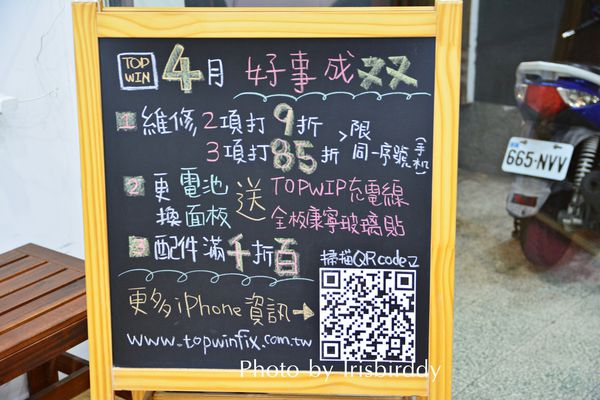 TOP WIN 4月 好事成双
1 維修 2項打9折 >限同一序號(手機)
3項打85折
2 更換 電池 面板 送 TOPWIP充電線
全板康寧玻璃貼
3 配件滿千折百
掃描QR code立
更多iPhone資訊→
www.topwinfix.com.tw
665-NVV
Photo by Irisbirddy